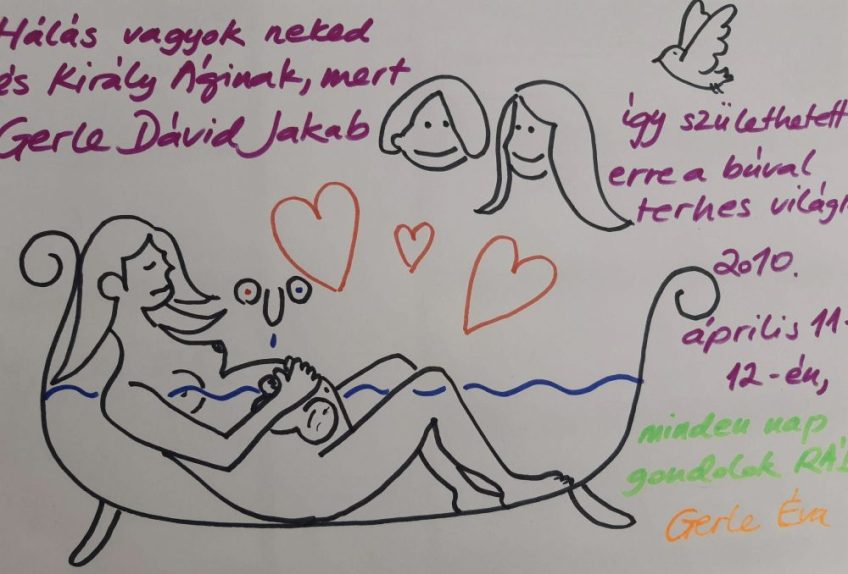 Hálás vagyok neked
és Király Áginak, mert
Gerle Dávid Jakab
így születhetett
erre a búval
terhes világr
2010.
április 11-
12-én,
minden nap
gondolok RÁD
Gerle Éva